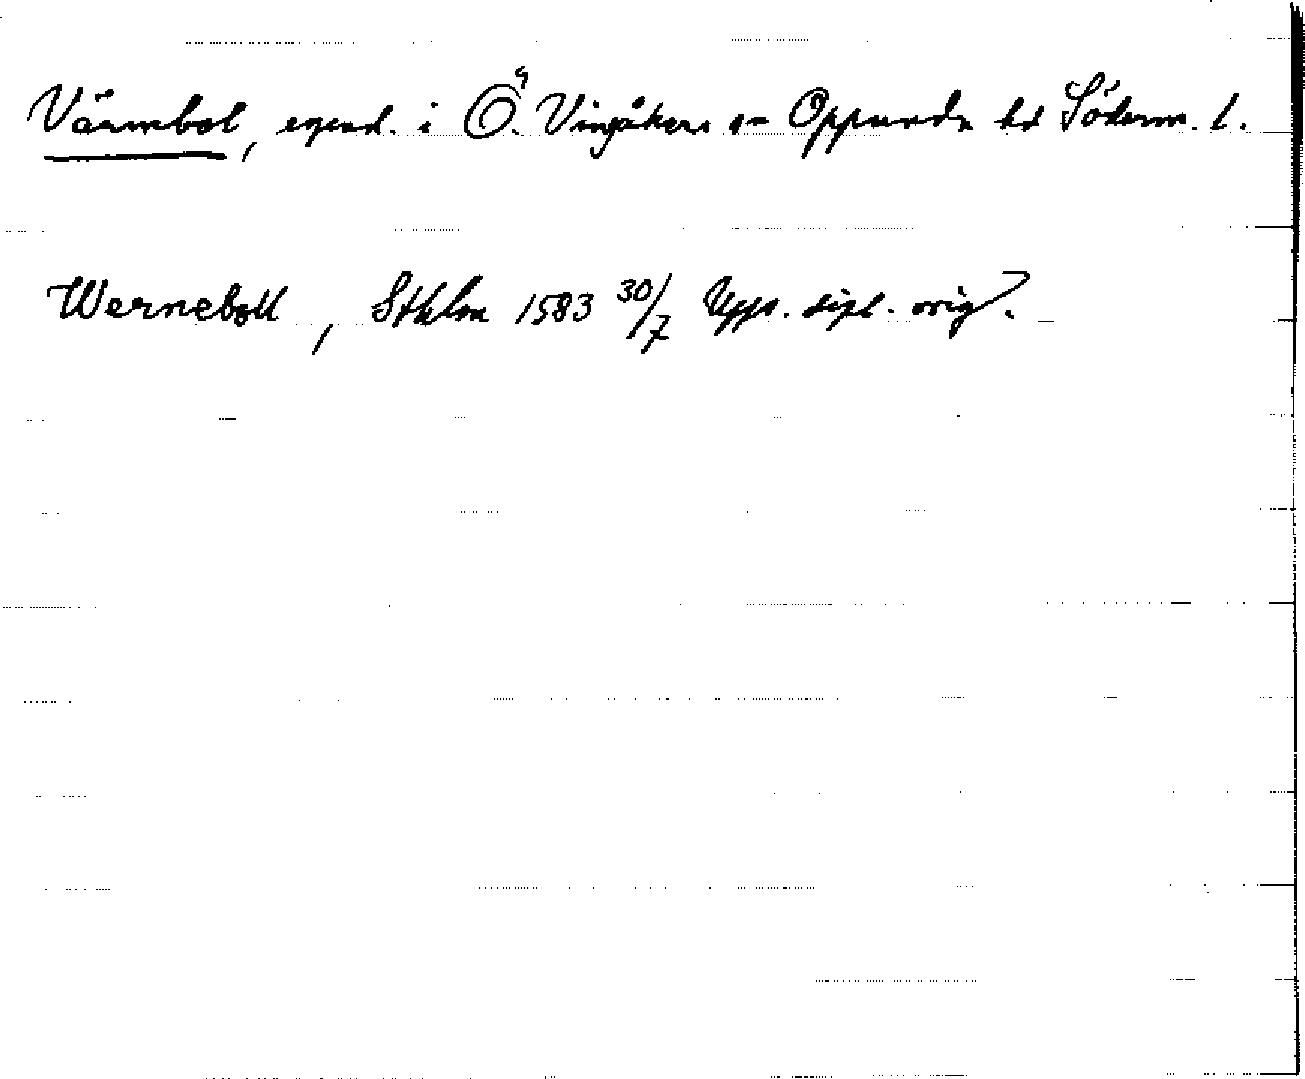 Värmbol, egend. i Ö. Vingåkers sn Oppunda hd Söderm. l.
Werneboll, Sthlm 1583 30/7 Upps. dipl. orig.